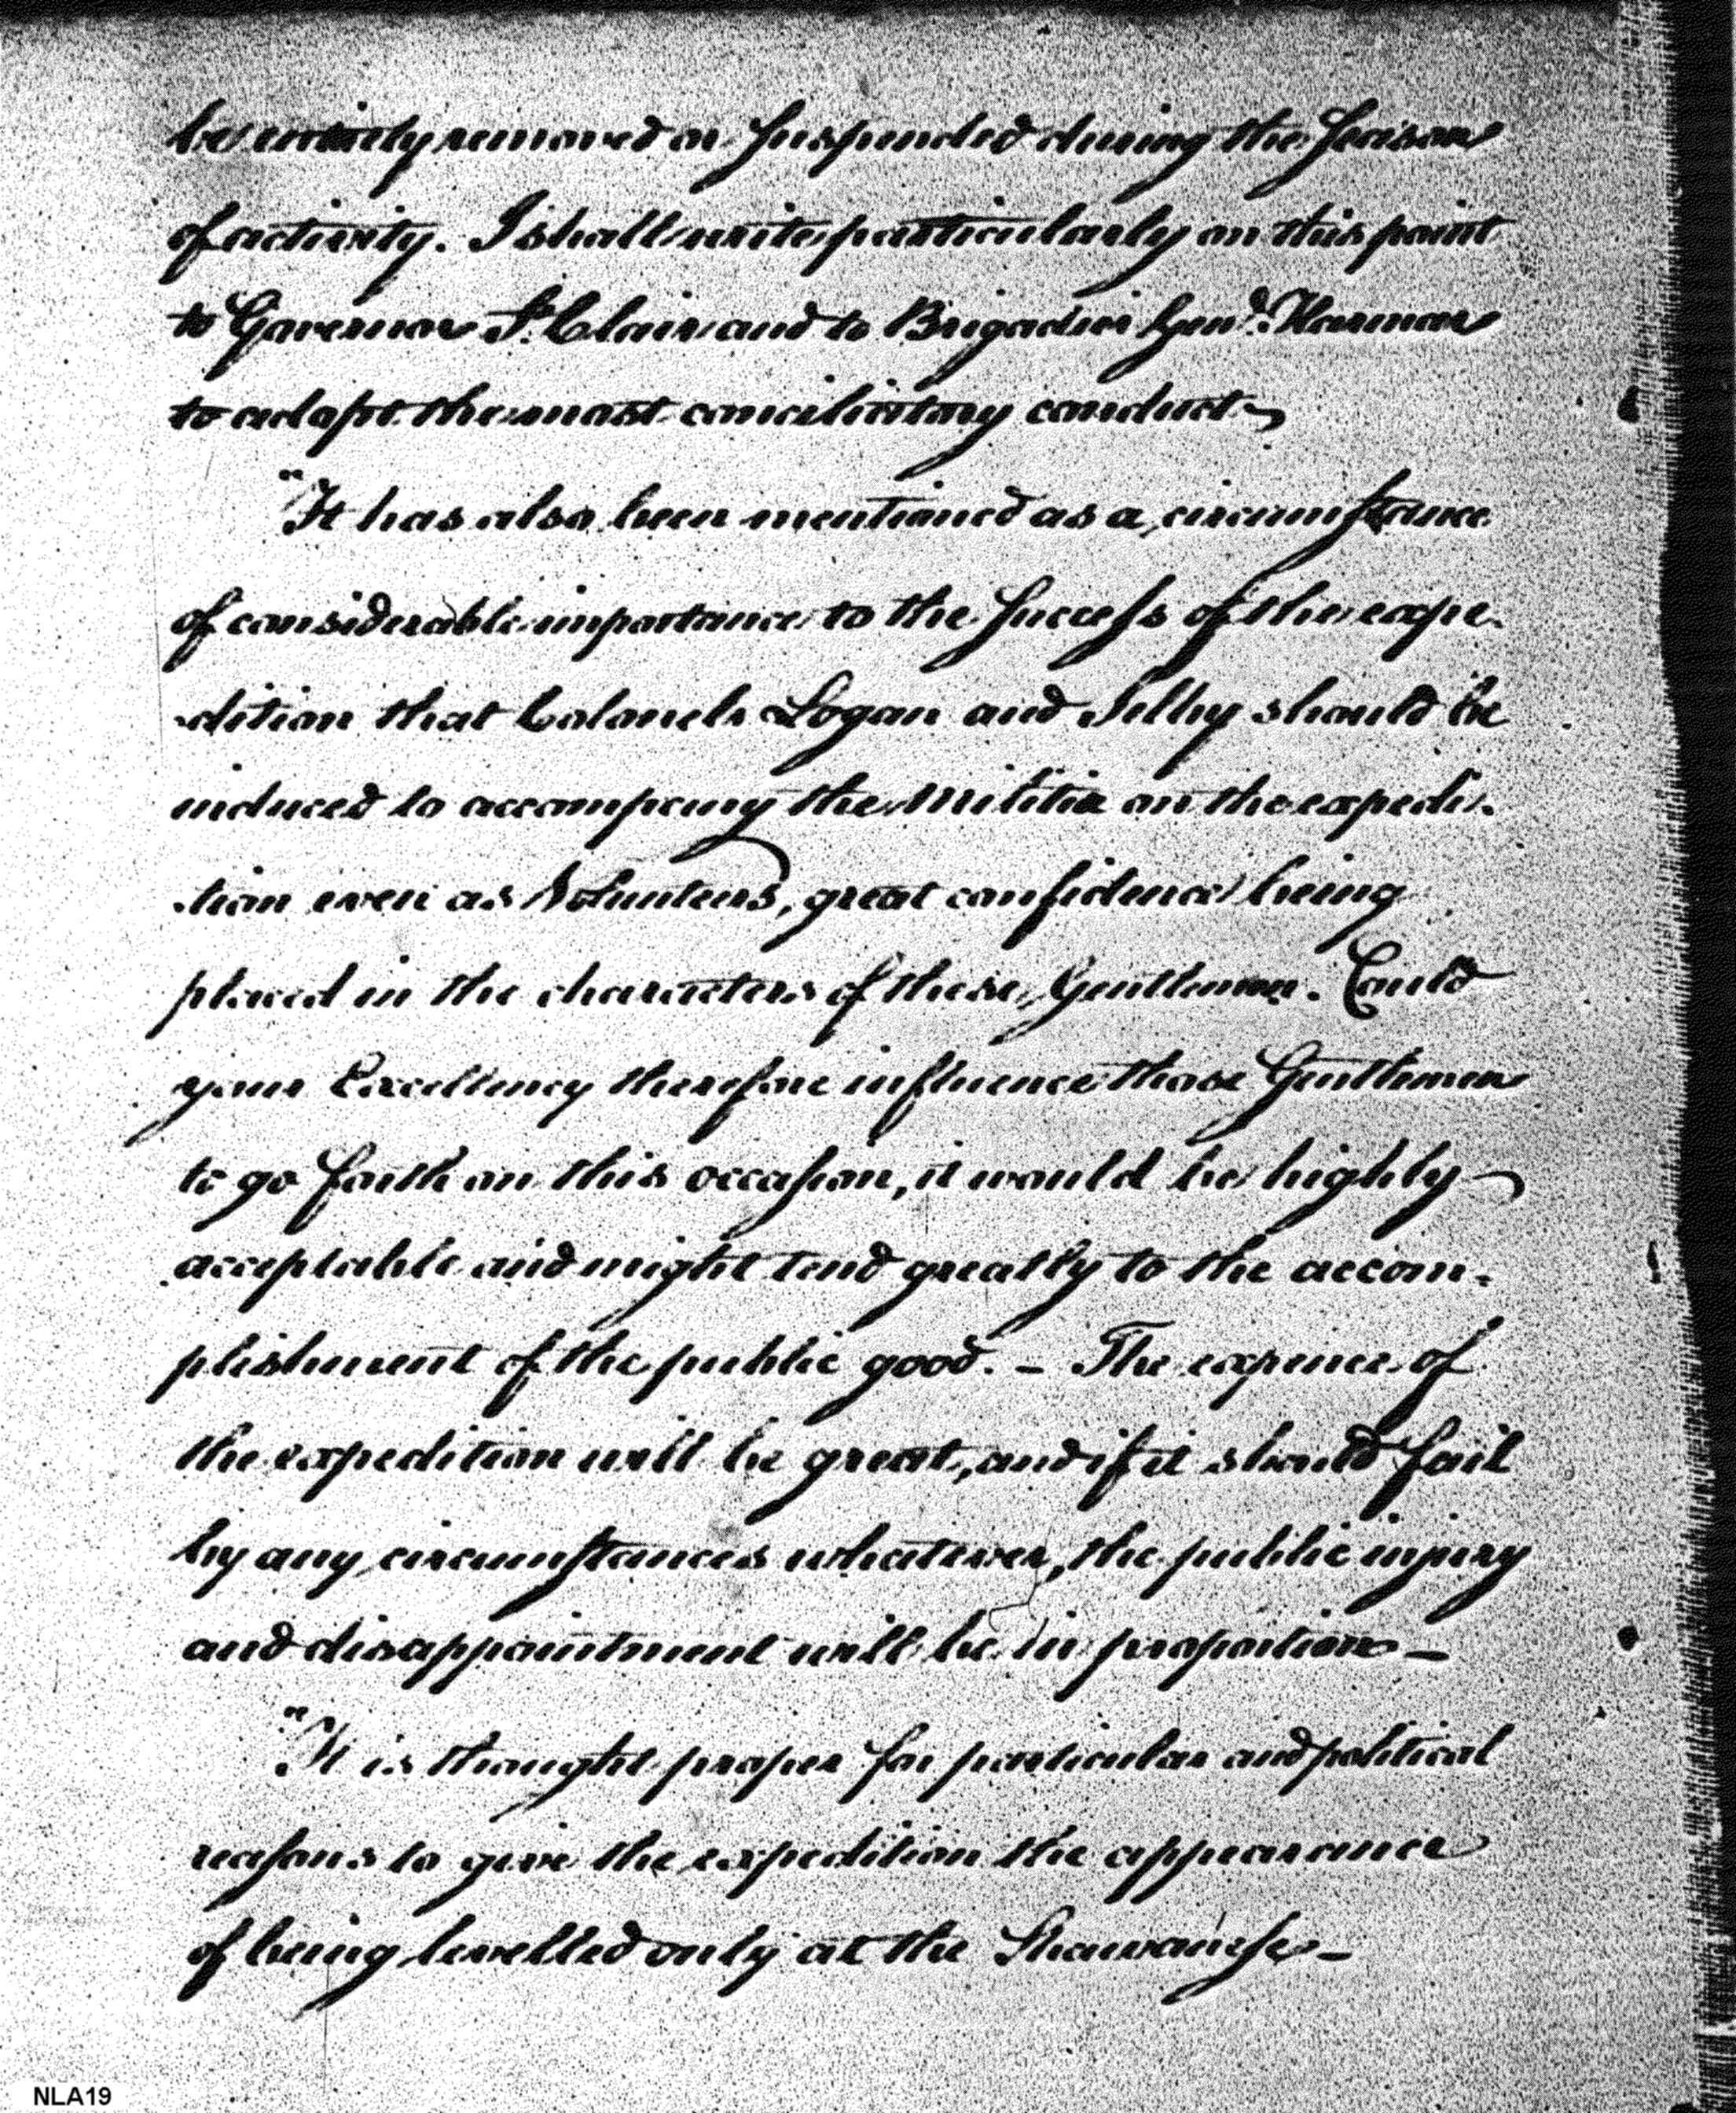 be entirely removed or Suspended during the Season
of activity. I shall write particularly on this point
to Governor St. Clair and to Brigadier Genl. Harmar
to adopt the most conciliatory conduct
"It has also been mentioned as a circumstance
of considerable importance to the Success of the expe-
-dition that Colonels Logan and Selby should be
induced to accompany the Militia on the expedi-
-tion even as Volunteers, great confidence being
placed in the characters of these Gentlemen. Could
your Excellency therefore influence those Gentlemen
to go forth on this occasion, it would be highly
acceptable and might tend greatly to the accom-
plishment of the public good. - The expence of
the expedition will be great, and if it should fail
by any circumstances whatever, the public injury
and disappointment will be in proportion -
"It is thought proper for particular and political
reasons to give the expedition the appearance
of being levelled only at the Shawanese -
NLA19